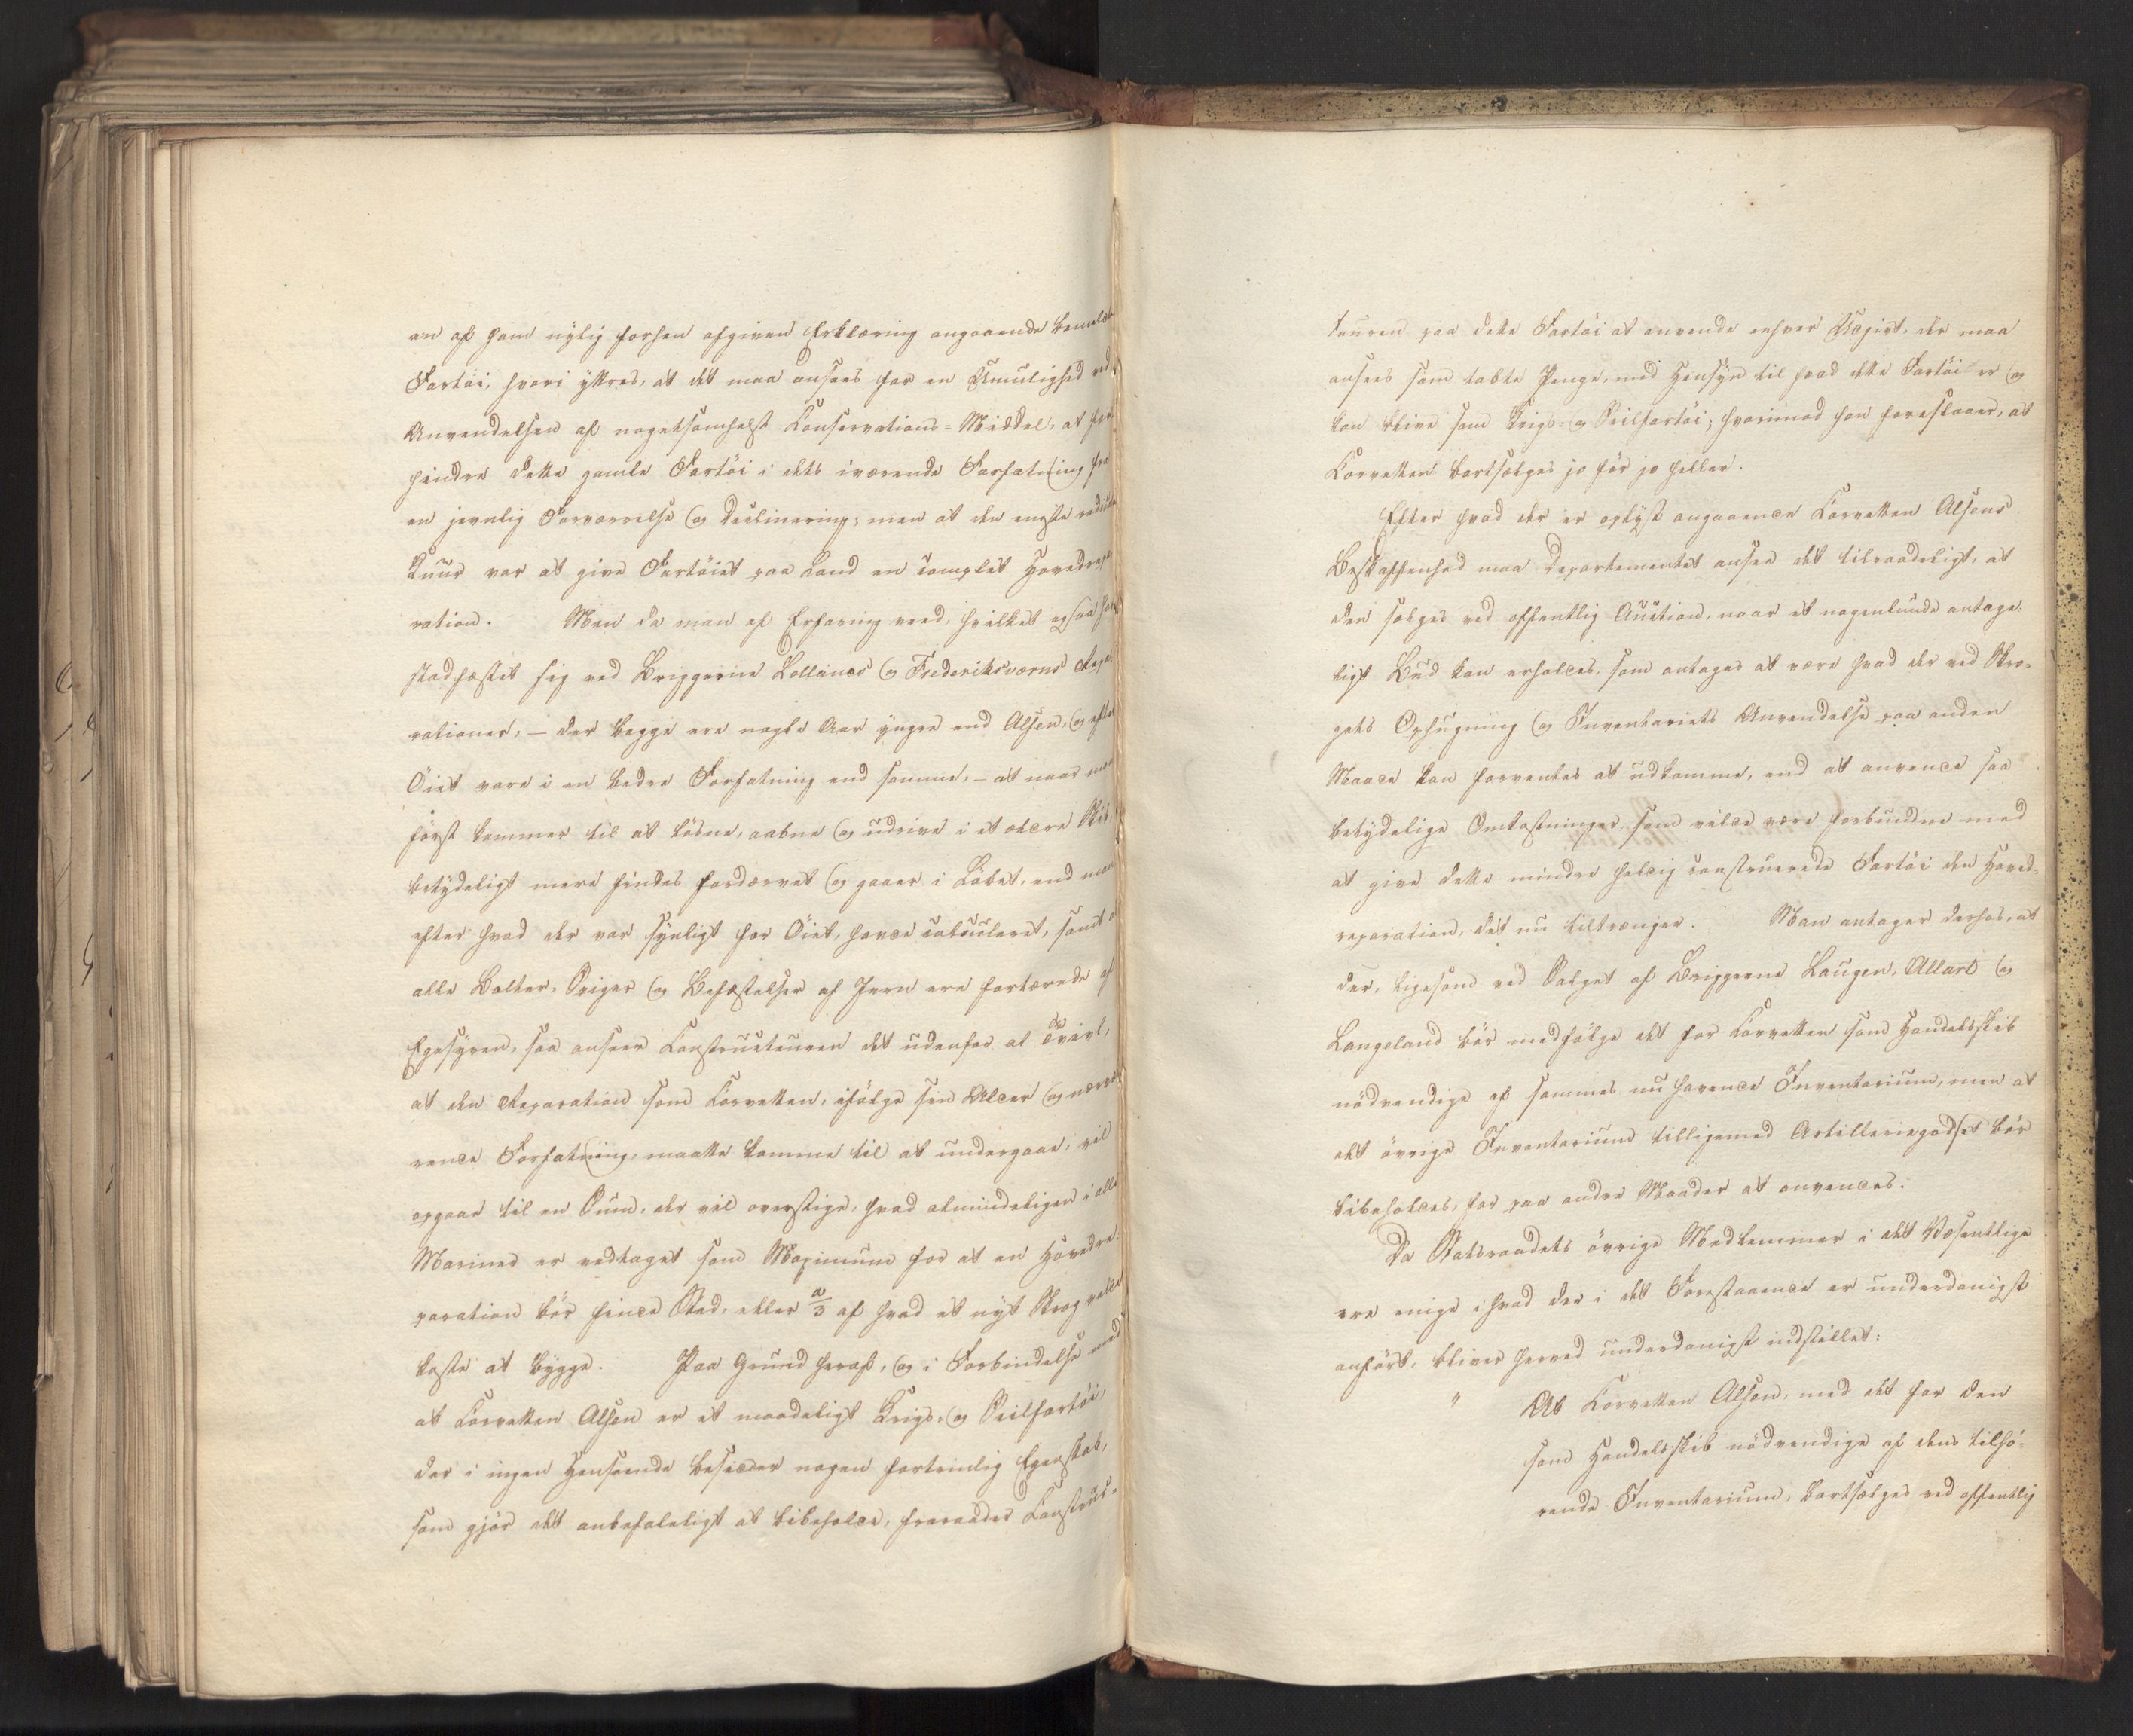 en af ham nylig forhen afgiven Erklæring angaaende bemeldte
Fartöi, hvori yttres, at det maa ansees for en Umulighed ved
Anvendelsen af nogetsomhelst Conservations-Middel, at for
hindre dette gamle Fartöi i dets iværende Forfatning fra
en jevnlig Forværrelse og Declinering; men at den eneste radicale
Kuur var at give Fartöiet paa Land en complet Hovedrepa
ration. Men da man af Erfaring veed, hvilket ogsaa har
stadfæstet sig ved Briggerne Lollands og Frederiksværns Repa
rationer, – der begge ere nogle Aar yngre end Alsen, og efter
Öiet vare i en bedre Forfatning end samme, – at naar man
först kommer til at lösne, aabne og udrive i et ældre Skib
betydeligt mere findes fordærvet og gaaer i Löbet, end man
efter hvad der var synligt for Öiet, havde calculeret, samt at
alle Bolter, Spiger og Befæstelser af Jern ere fortærede af
Egesyren, saa anseer Constructeuren det udenfor al Tvivl,
at den Reparation som Corvetten, ifölge sin Alder og nærvæ
rende Forfatning, maatte komme til at undergaae, vil
opgaae til en Sum, der vil overstige, hvad almindeligen i alle
Mariner er vedtaget som Maximum for at en Hovedre
paration bör finde Sted, eller 2/3 af hvad et nyt Skrog vilde
koste at bygge. Paa Grund heraf, og i Forbindelse med
at Corvetten Alsen er et maadeligt Krigs- og Seilfartöi,
der i ingen Henseende besidder nogen fortrinlig Egenskab,
som gjör det anbefaleligt at bibeholde, fraraader Construc-
teuren paa dette Fartöi at anvende enhver Udgivt, der maa
ansees som tabte Penge, med Hensyn til hvad dette Fartöi er og
kan blive som Krigs- og Seilfartöi; hvorimod han foreslaaer, at
Corvetten bortsælges jo för jo heller.
Efter hvad der er oplyst angaaende Corvetten Alsens
Beskaffenhed maa Departementet ansee det tilraadeligt, at
den sælges ved offentlig Auction, naar et nogenlunde antage-
ligt Bud kan erholdes, som antages at være hvad der ved Skro-
gets Ophugning og Inventariets Anvendelse paa anden
Maade kan forventes at udkomme, end at anvende saa
betydelige Omkostninger, som vilde være forbundne med
at give dette mindre heldig construerede Fartöi den Hoved-
reparation, det nu tiltrænger. Man antager derhos, at
der, ligesom ved Salget af Briggerne Laugen, Allart og
Langeland bör medfölge det for Corvetten som Handelsskib
nödvendige af sammes nu havende Inventarium, men at
det övrige Inventarium tilligemed Artilleriegodset bör
bibeholdes, for paa andre Maader at anvendes.
Da Statsraadets övrige Medlemmer i det Væsentlige
ere enige i hvad der i det Foranstaaende er underdanigst
anfört, bliver herved underdanigst indstillet:
" At Corvetten Alsen, med det for den
som Handelsskib nödvendige af dens tilhö-
rende Inventarium, bortsælges ved offentlig